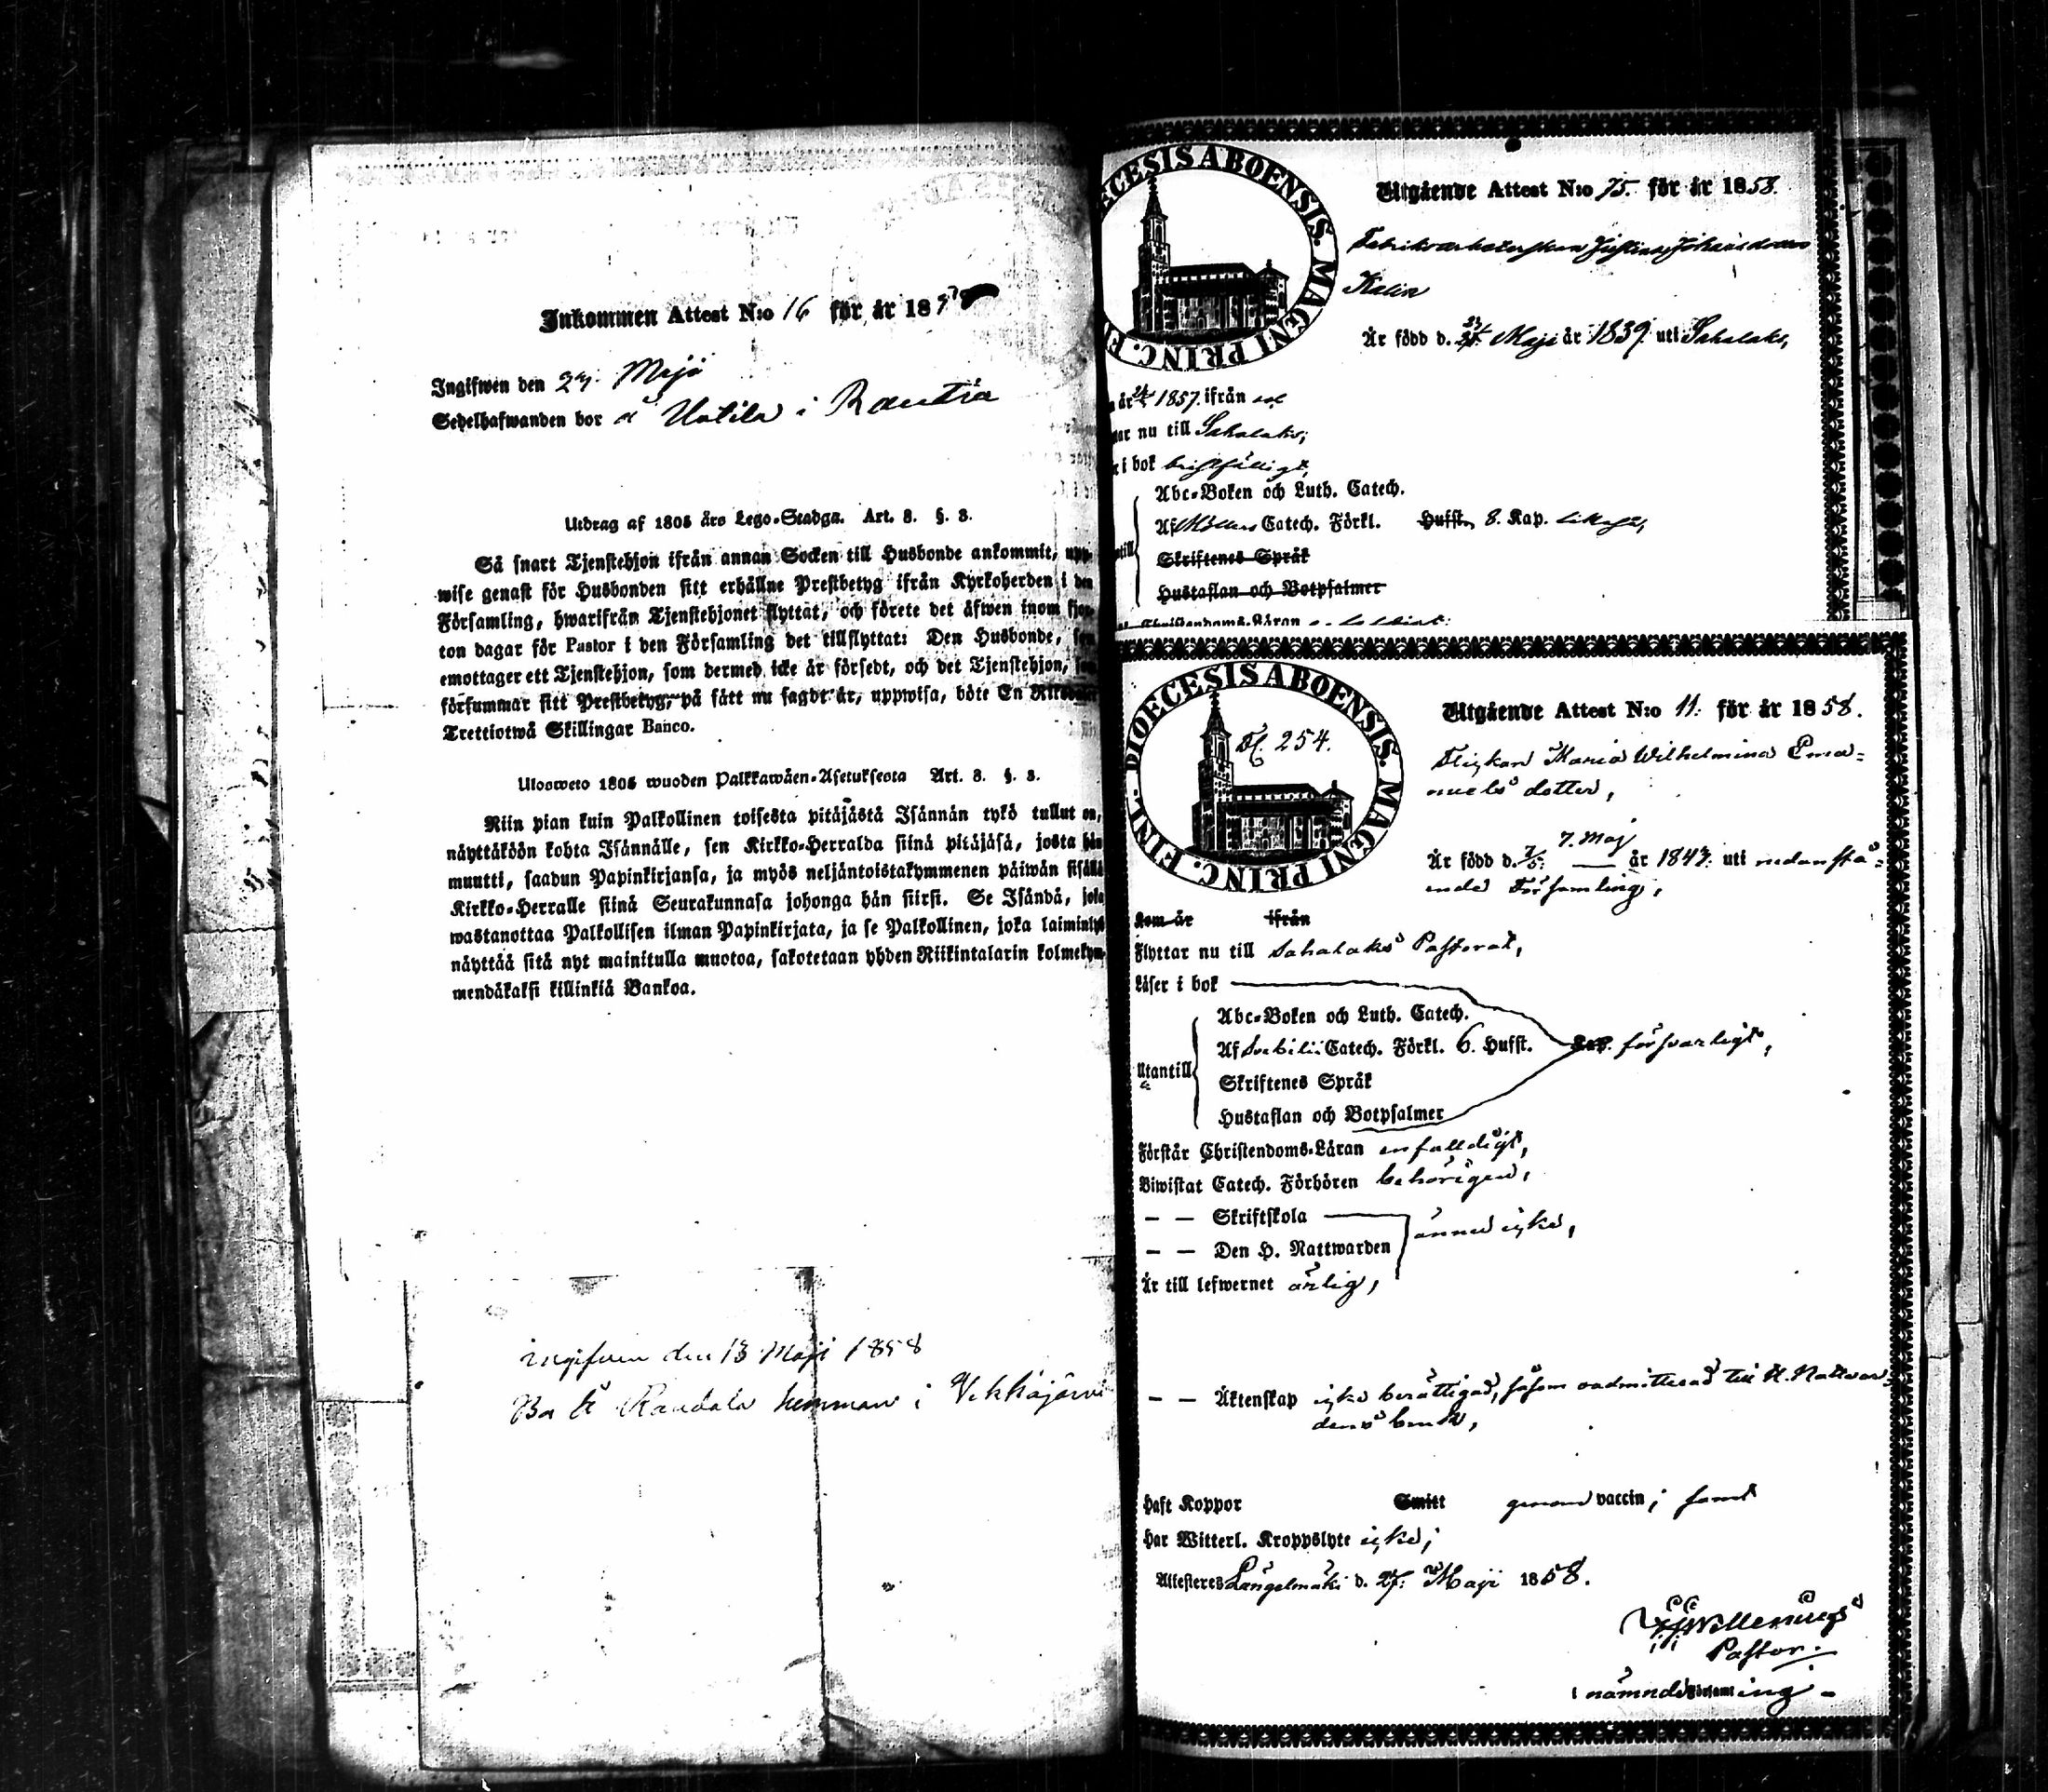 Inkommen Attest N:o 16 för år 1858
Ingifwen den 27. Maji
Sedelhafwanden bor å Uotila i Rautia
Utdrag af 1805 års Lego-Stadga. Art. 8. §. 3.
Så snart Tjenstehjon ifrån annan Socken till Husbonde ankommit, upp-
wise genast för Husbonden sitt erhållne Prestbetyg ifrån Kyrkoherden i den
Församling, hwarifrån Tjenstehjonet flyttat, och förete det äfwen inom fjor-
ton dagar för Pastor i den Församling det tillflyttat: Den Husbonde, som
emottager ett Tjenstehjon, som dermed icke är försedt, och det Tjenstehjon, som
försummar sitt Prestbetyg, på sätt nu sagdt är, uppwisa, böte En Riksdaler
Trettiotwå Skillingar Banco.
Ulosweto 1805 wuoden Palkkawäen-Asetuksesta Art. 8. §. 3.
Niin pian kuin Palkollinen toisesta pitäjästä Isännän tykö tullut on,
näyttäköön kohta Isännälle, sen Kirkko-Herralda siinä pitäjäsä, josta hän
muutti, saadun Papinkirjansa, ja myös neljäntoistakymmenen päiwän sisällä
Kirkko-Herralle siinä Seurakunnasa johonga hän siirsi. Se Isändä, joka
wastanottaa Palkollisen ilman Papinkirjata, ja se Palkollinen, joka laiminlyö
näyttää sitä nyt mainitulla muotoa, sakotetaan yhden Riikintalarin kolmekym-
mendäkaksi killinkiä Bankoa.
ingifven den 13 Maji 1858
Bor å Raudala hemman i Vekkajärvi
DIOECESIS ABOENSIS. MAGNI PRINC. FINL.
Utgående Attest N:o 75. för år 1858.
Fabriksarbeterskan Justina Johansdotter
Kalin
Är född d. Maji år 1839. uti Sahalaks,
år 1857. ifrån
nu till Sahalaks,
i bok bristfälligt,
Abc-Boken och Luth. Catech.
Af Möllers Catech. Förkl. Hufst. 8. Kap.
Skriftenes Språk
Hustaflan och Botpsalmer
Christendoms-Läran
DIOECESIS ABOENSIS. MAGNI PRINC. FINL.
254.
Utgående Attest N:o 11. för år 1858.
Flickan Maria Wilhelmina Ema-
nuels dotter,
7. Maj
Är född d. 7/5. år 1843. uti nedanstå-
ende Församling,
Kom år ifrån
Flyttar nu till Sahalaks Pastorat,
Läser i bok
Abc-Boken och Luth. Catech.
Af Svebilii Catech. Förkl. 6. Hufst. Kap. försvarligt,
Utantill
Skriftenes Språk
Hustaflan och Botpsalmer
Förstår Christendoms-Läran enfaldigt,
Biwistat Catech. Förhören behörigen,
— — Skriftskola
ännu icke,
— — Den H. Nattwarden
Är till lefwernet ärlig,
— — Äktenskap icke berättigad, såsom oadmitterad till H. Nattvar-
dens bruk,
Haft Koppor Smitt genom vaccin; samt
Har Witterl. Kroppslyte icke;
Attesteres Längelmäki d. 27. Maji 1858.
Pastor.
i nämnde Församling.